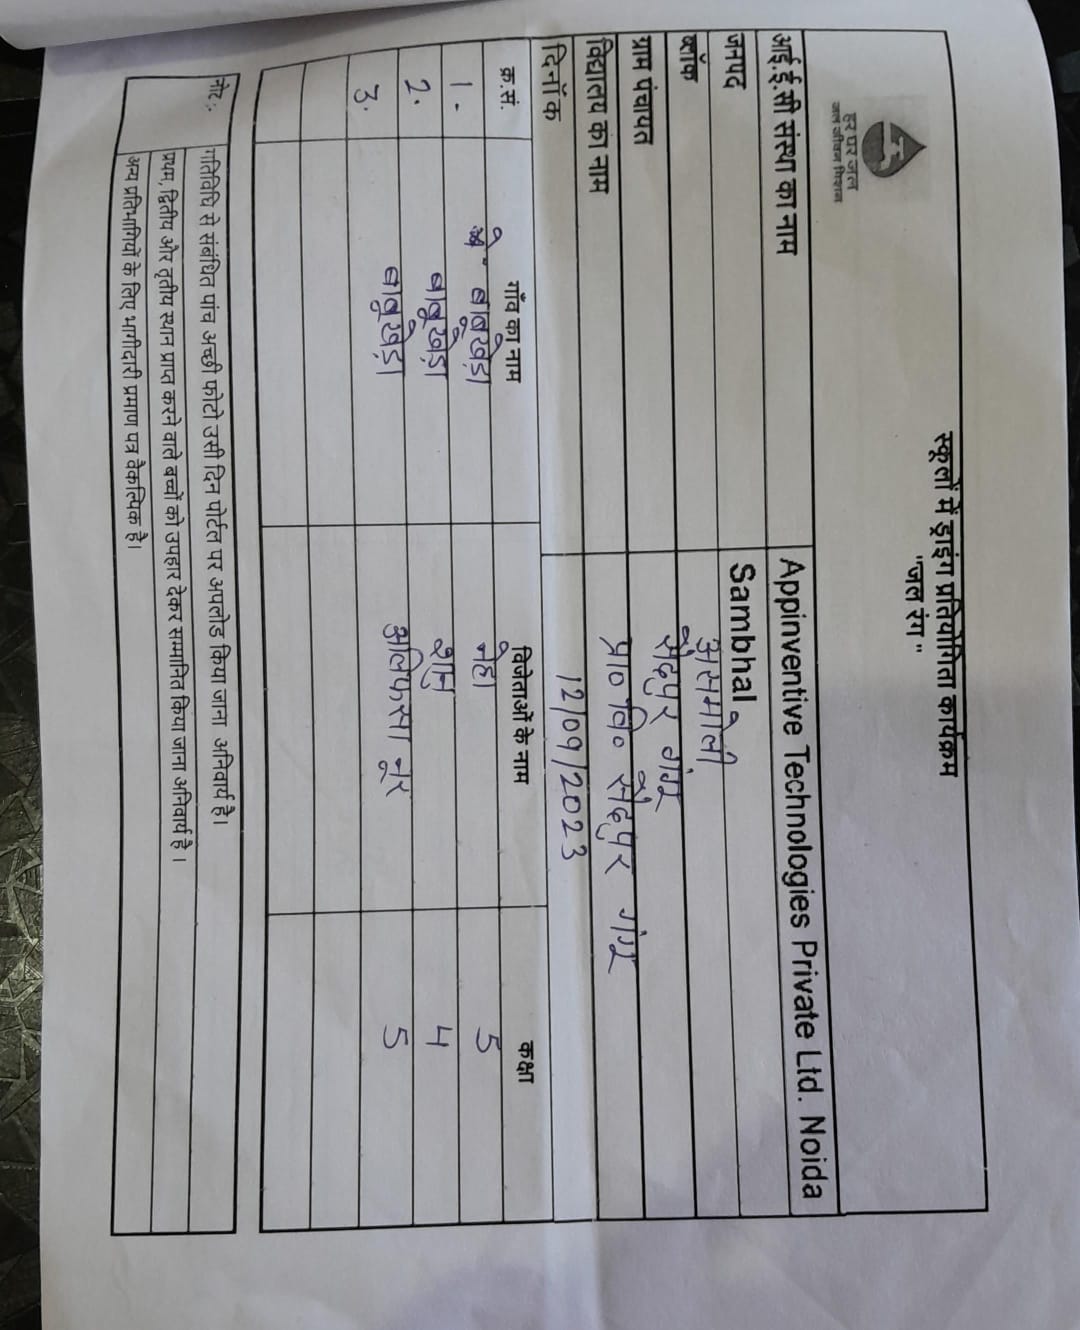 हर घर जल
जल जीवन मिशन
स्कूलों में ड्राइंग प्रतियोगिता कार्यक्रम
"जल रंग"
आई.ई.सी संस्था का नाम Appinventive Technologies Private Ltd. Noida
जनपद Sambhal
ब्लॉक असमोली
ग्राम पंचायत सैदपुर गंगू
विद्यालय का नाम प्रा० वि० सैदपुर गंगू
दिनॉंक 12/09/2023
क्र.सं. गाँव का नाम विजेताओं के नाम कक्षा
1. बाबूखेड़ा नेहा 5
2. बाबूखेड़ा शानु 4
3. बाबूखेड़ा अलिफसा नूर 5
नोट:- गतिविधि से संबंधित पांच अच्छी फोटो उसी दिन पोर्टल पर अपलोड किया जाना अनिवार्य है।
प्रथम, द्वितीय और तृतीय स्थान प्राप्त करने वाले बच्चों को उपहार देकर सम्मानित किया जाना अनिवार्य है ।
अन्य प्रतिभागियों के लिए भागीदारी प्रमाण पत्र वैकल्पिक है।